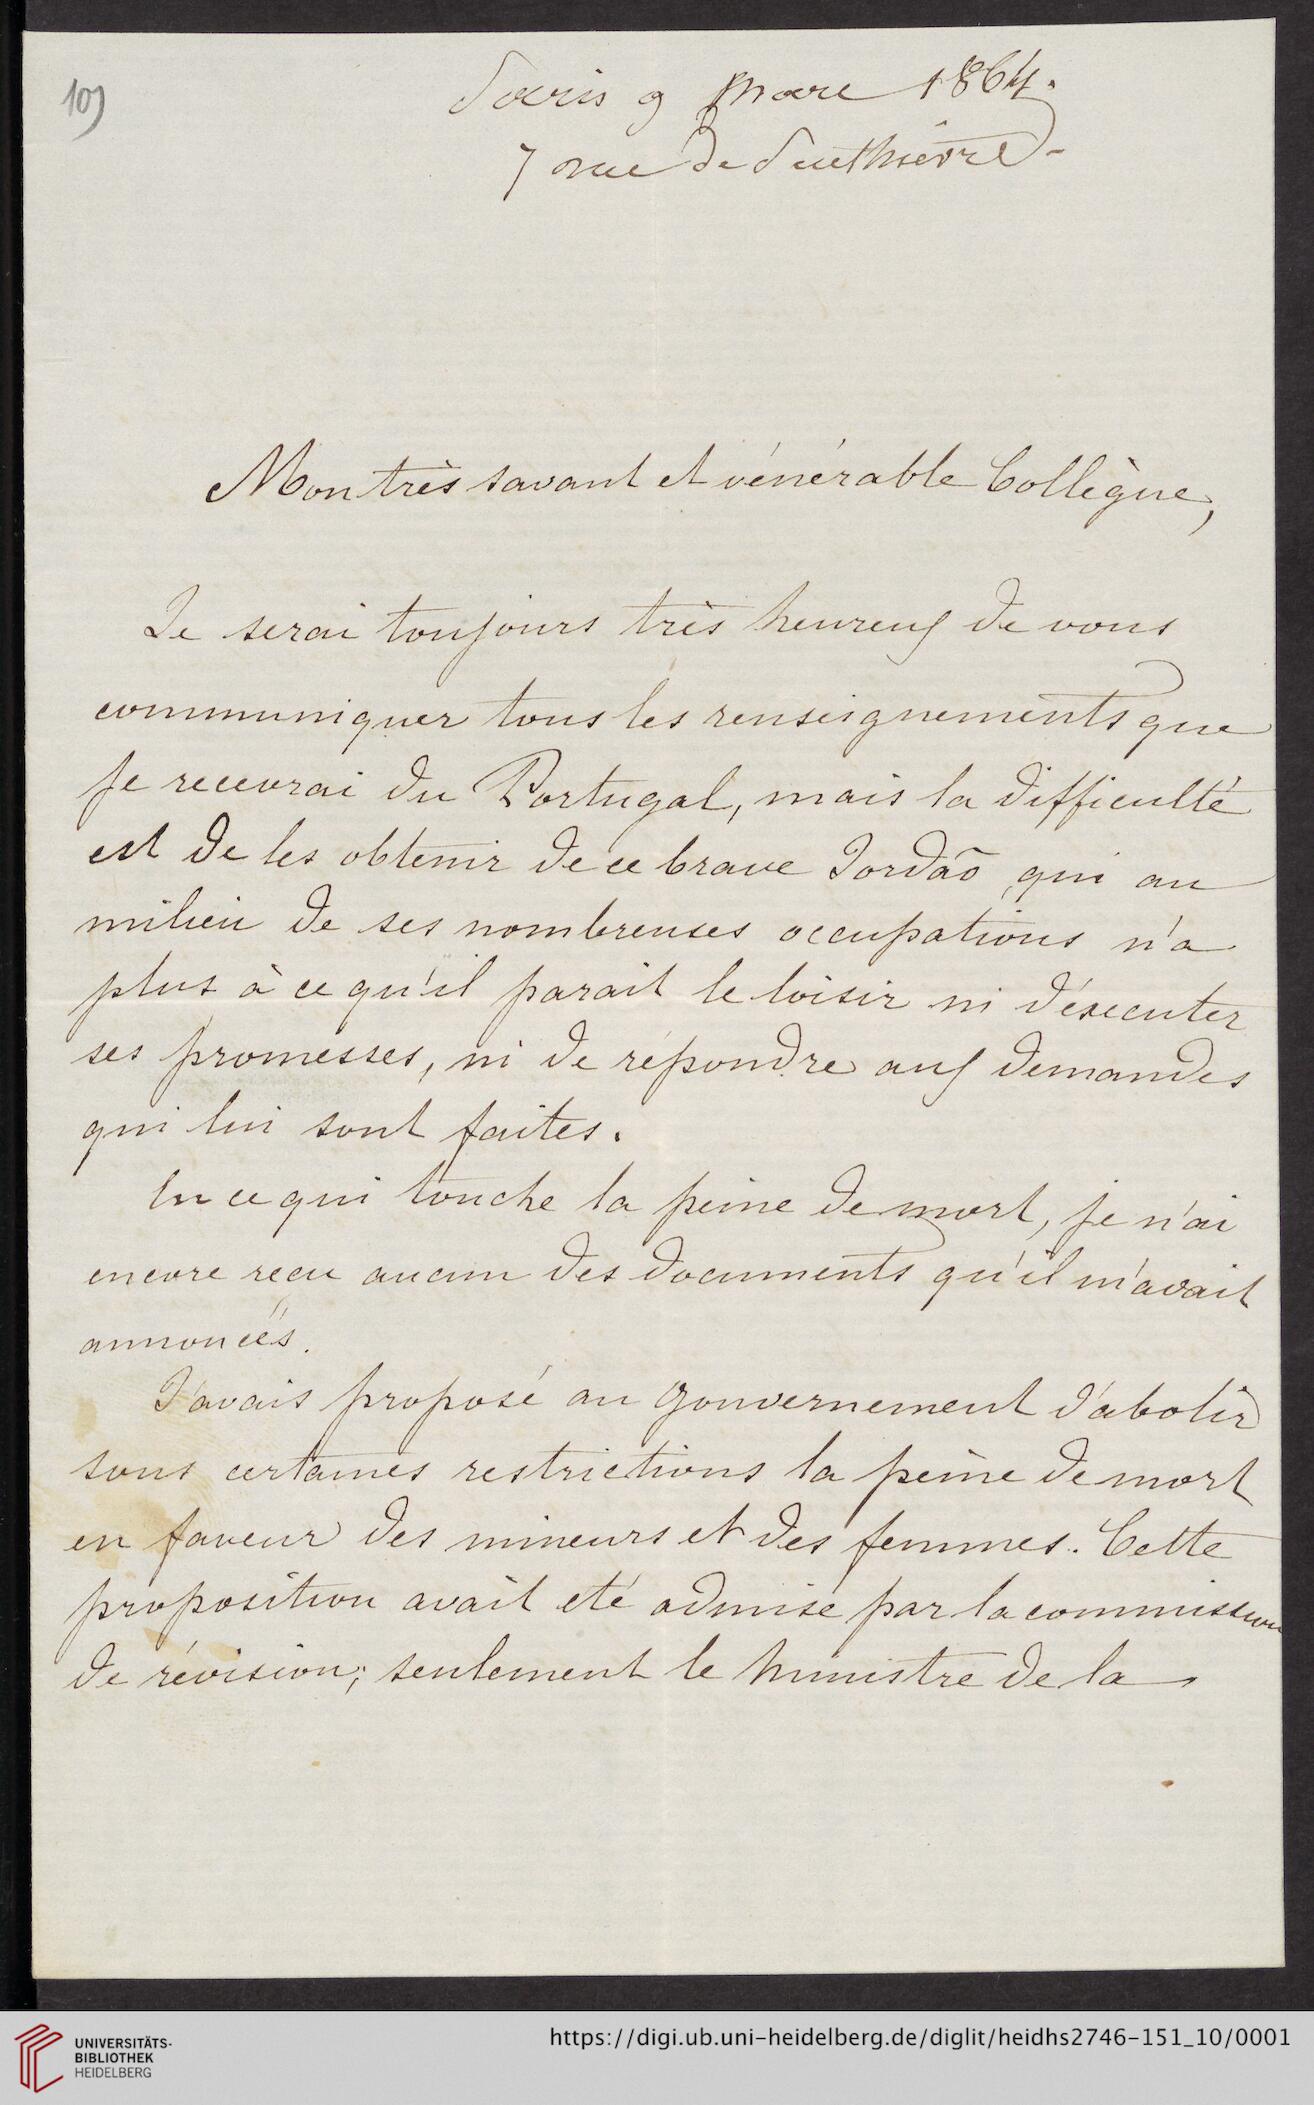 109
Paris 9 Mars 1864.
7 rue de Penthièvre -
Mon très savant et vénérable Collègue,
Je serai toujours très heureux de vous
communiquer tous les renseignements que
je recevrai du Portugal, mais la difficulté
est de les obtenir de ce brave Jordaõ, qui au
milieu de ses nombreuses occupations n'a
plus à ce qu'il parait le loisir ni d'éxecuter
ses promesses, ni de répondre aux demandes
qui lui sont faites.
En ce qui touche la peine de mort, je n'ai
encore recu aucun des documents qu'il m'avait
annoncés.
J'avais proposé au gouvernement d'abolir
sous certaines restrictions la peine de mort
en faveur des mineurs et des femmes. Cette
proposition avait eté admise par la commission
de révision; seulement le ministre de la
UNIVERSITÄTS-
BIBLIOTHEK
HEIDELBERG
https://digi.ub.uni-heidelberg.de/diglit/heidhs2746-151_10/0001